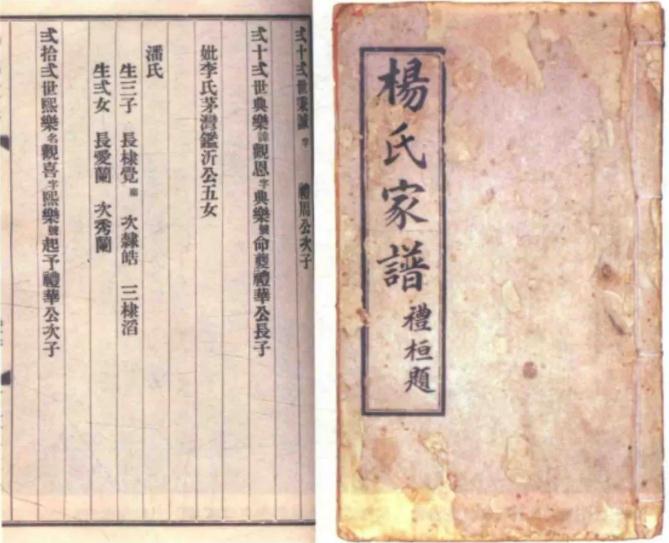 弍十弍世秉誠 字 禮周公次子
弍十弍世典樂諱觀恩字典樂號命夔禮華公長子
妣李氏茅灣鑑沂公五女
潘氏
生三子 長棣覺 次隸皓 三棣滔
生弍女 長愛蘭 次秀蘭
弍拾弍世熙樂名觀喜字熙樂號起予禮華公次子
楊氏家譜
禮桓題